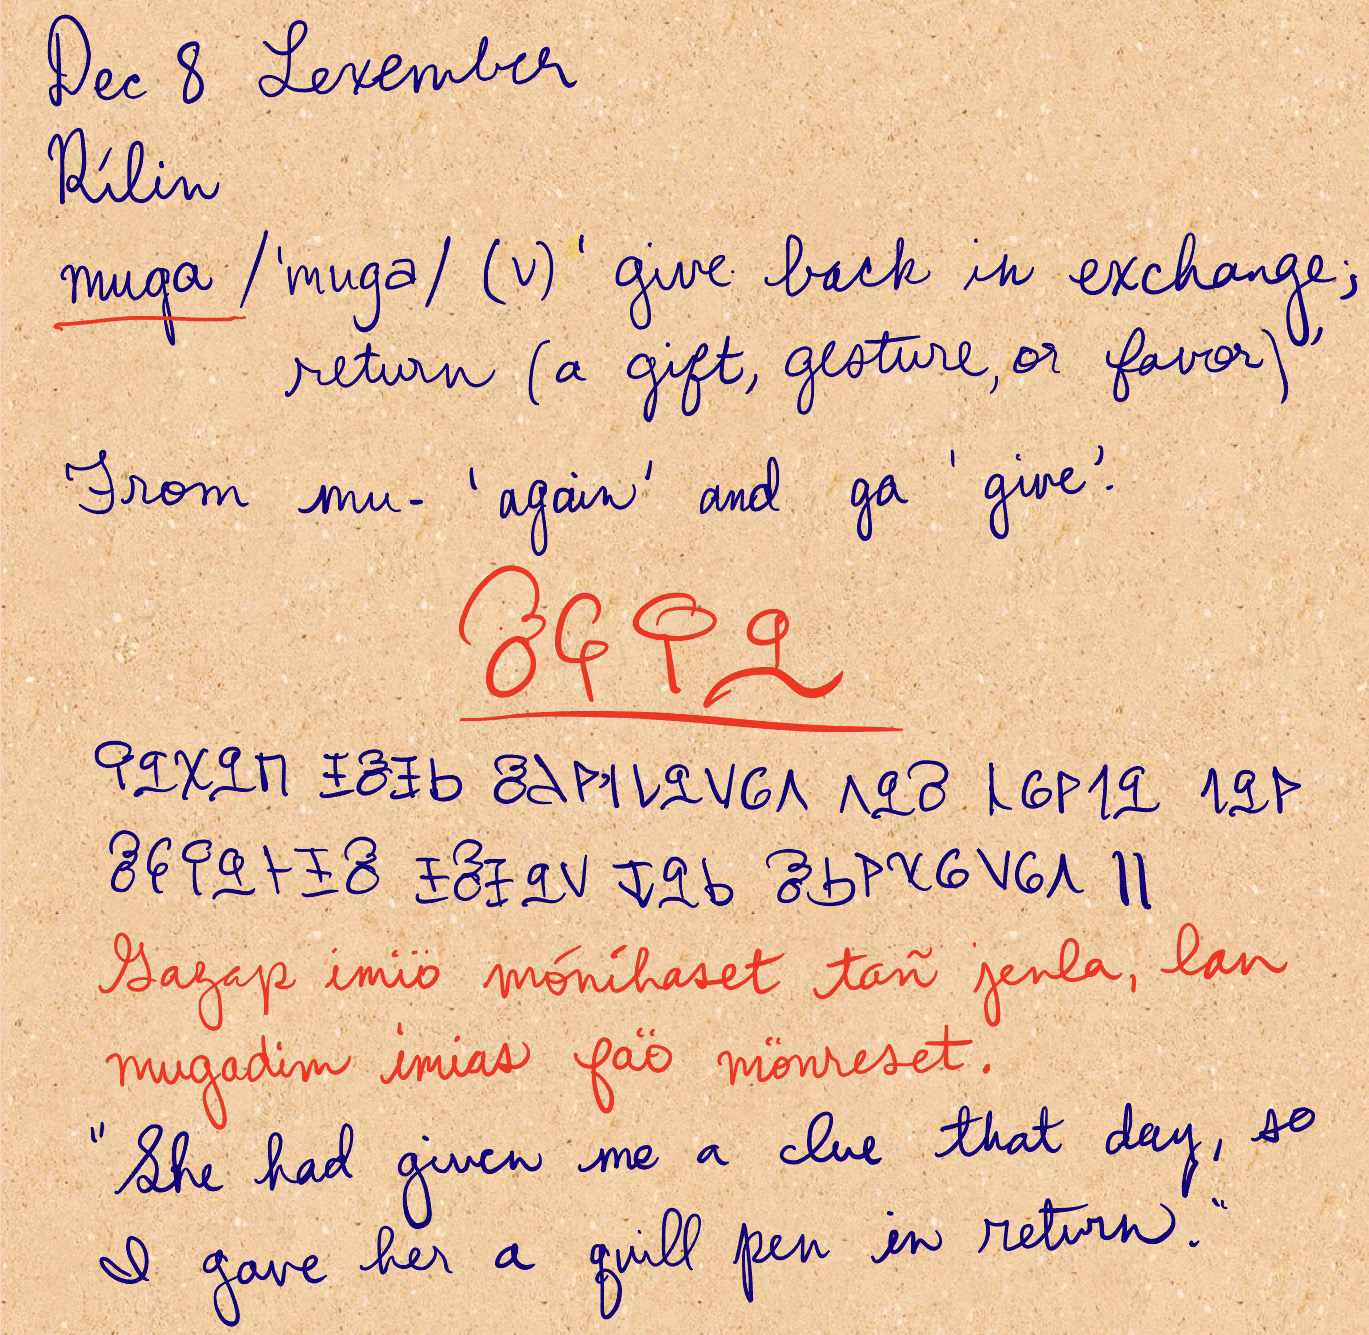 Dec 8 Lexember
Rílin
muga /ˈmuga/ (v) 'give back in exchange;
return (a gift, gesture, or favor)'
From mu- 'again' and ga 'give'.
Gazap imïö móníhaset tañ jenla, lan
mugadim imias fäö mönreset.
"She had given me a clue that day, so
I gave her a quill pen in return."